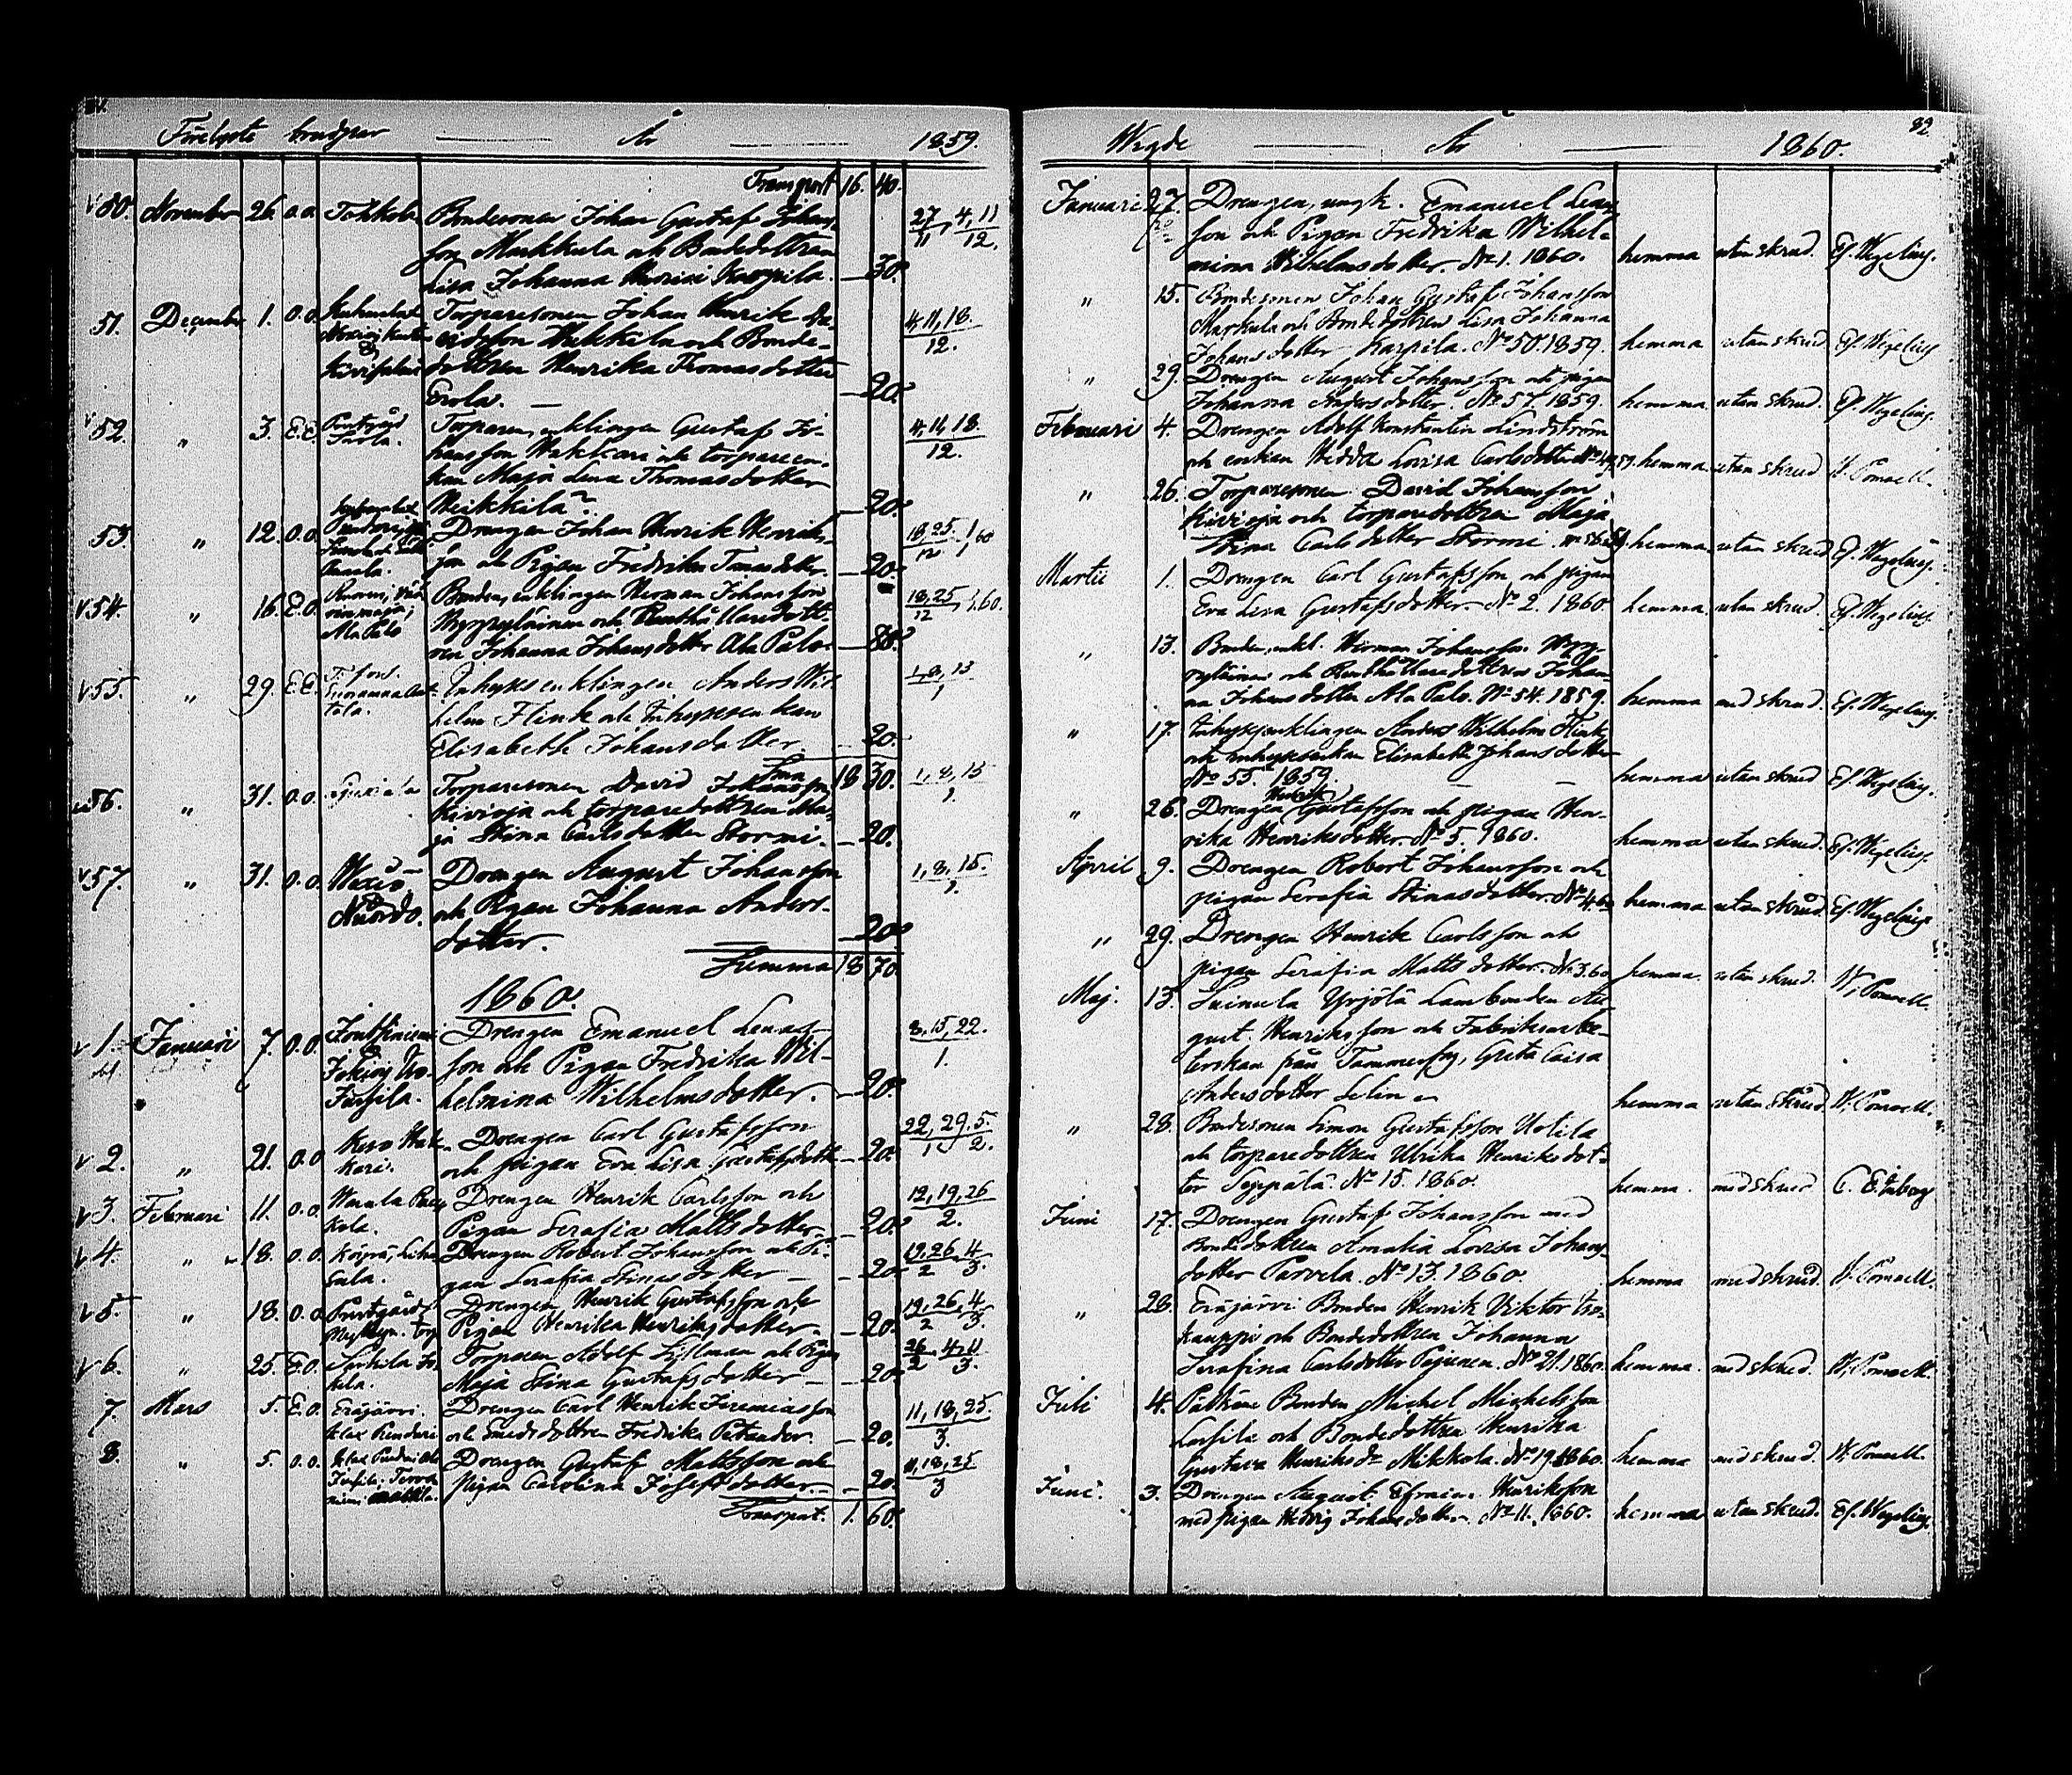 Förelyste brudpar År 1859.
Transport 16. 40.
50. November 26. o.o. Tokkola Bondesonen Johan Gustaf Johans- 27/11, 4, 11/12.
son Markkula och Bondedottren
Lisa Johanna Karpila. 30.
51. December 1. o.o. Torparesonen Johan Henrik Da- 4, 11, 18./12.
vidsson Heikkilä och Bonde-
dottren Henrika Thomasdotter
Erola. 20.
52. " 3. E.E. Torparen, enklingen Gustaf Jo- 4, 11, 18./12.
hansson Wakkari och torpareen-
kan Maja Lena Thomasdotter
Heikkilä 20.
53. " 12. o.o. Drengen Johan Henrik Henriks- 18, 25/12 1/1 60
son och Pigan Fredrika dotter. 20.
54. " 16. E.o. Bonden, enklingen Herman Johansson 18, 25/12, 1/1 60.
och Rusthållaredott-
ren Johanna Johansdotter Ala Palo. 80.
55. " 29. E.E. Inhyses enklingen Anders Wil- 1, 8, 15/1
helm Flink och Inhysesenkan
Elisabeth Johansdotter. 20.
Sma 18 30.
56. " 31. o.o. Torparesonen David Johansson 1, 8, 15/1.
Kivioja och torparedottren Ma-
ja Stina Carlsdotter Stormi. 20.
57. " 31. o.o. Drengen August Johansson 1, 8, 15./1.
och Pigan Johanna Anders-
dotter. 20.
Summa 18 70.
1860.
1. Januari 7. o.o. Drengen Emanuel Lenas- 8, 15, 22./1.
son och Pigan Fredrika Wil-
helmina Wilhelmsdotter. 20.
2. " 21. o.o. Drengen Carl Gustafsson 22, 29./1 5./2.
och pigan Eva Lisa Gustafsdotter 20.
3. Februari 11. o.o. Drengen Henrik Carlsson och 12, 19, 26/2.
Pigan Serafia Mattsdotter. 20.
4. " 18. o.o. Drengen Robert Johansson och Pi- 19, 26/2 4/3.
gan Serafia Stinasdotter 20.
5. " 18. o.o. Prestgård Drengen Henrik Gustafsson och 19, 26/2 4/3.
Pigan Henrika Henriksdotter. 20.
6. " 25. E.o. Torparen Adolf och Pigan 26/2 4, 11/3.
Maja Stina Gustafsdotter 20.
7. Mars 5. E.o. Eräjärvi Drengen Carl Henrik Jeremiasson 11, 18, 25./3.
och Smedsdottren Fredrika Petander. 20.
8. " 5. o.o. Drengen Gustaf Mattsson och 11, 18, 25/3
Pigan Carolina Josefsdotter. 20.
Transport. 1. 60.
Wigde År 1860. 82
Januari 22. Drengen, ungk. Emanuel Lenas-
son och Pigan Fredrika Wilhel-
mina Wilhelmsdotter. No 1. 1860. hemma utan skrud. Ef. Wegelius.
" 15. Bondesonen Johan Gustaf Johansson
Markula och Bondedottren Lisa Johanna
Johansdotter Karpila. No 50. 1859. hemma utan skrud. Ef. Wegelius
" 29. Drengen August Johansson och pigan
Johanna Andersdotter. No 57. 1859. hemma utan skrud. Ef. Wegelius.
Februari 4. Drengen Adolf Konstantin Lindström
och enkan Hedda Lovisa Carlsdotter hemma utan skrud
" 26. Torparesonen David Johansson
Kivioja och torparedottren Maja
Stina Carlsdotter Stormi. No 56. 59. hemma utan skrud Ef. Wegelius.
Martii 1. Drengen Carl Gustafsson och pigan
Eva Lisa Gustafsdotter. No 2. 1860 hemma utan skrud Ef. Wegelius.
" 13. Bonden, enkl. Herman Johansson
och Rusthållaredottren Johan-
na Johansdotter Ala Palo. No 54. 1859. hemma med skrud. Ef. Wegelius.
" 17. Inhysesenklingen Anders Wilhelm Flink
och inhysesenkan Elisabeth Johansdotter
No 55. 1859. hemma utan skrud Ef. Wegelius.
" 26. Drengen Henrik Gustafsson och pigan Hen-
rika Henriksdotter. No 5. 1860. hemma utan skrud Ef. Wegelius.
April 9. Drengen Robert Johansson och
pigan Serafia Stinasdotter. No 4. 60 hemma utan skrud. Ef. Wegelius
" 29. Drengen Henrik Carlsson och
pigan Serafia Mattsdotter. No 3. 60 hemma utan skrud.
Maj. 13. Yrjölä Lambonden Au-
gust Henriksson och Fabriksarbe-
terskan från Tammerfors, Greta Caisa
Andersdotter Selin hemma utan skrud.
" 28. Bondesonen Simon Gustafsson Uotila
och torparedottren Ulrika Henriksdot-
ter Seppälä. No 15. 1860. hemma. med skrud
Juni 17. Drengen Gustaf Johansson med
Bondedottren Amalia Lovisa Johans-
dotter Parvela. No 13. 1860 hemma med skrud.
" 28. Eräjärvi Bonden Henrik Viktor Iso-
kauppi och Bondedottren Johanna
Serafina Carlsdotter Pajunen. No 21. 1860. hemma. med skrud.
Juli 4. Pälkäne Bonden Michel Michelsson
Lassila och Bondedottren Henrika
Gustava Henriksdr Mikkola. No 19. 1860. hemma med skrud.
Juni. 3. Drengen August Efraim Henriksson
med pigan Hedvig Johansdotter. No 11. 1860. hemma utan skrud. Ef. Wegelius.